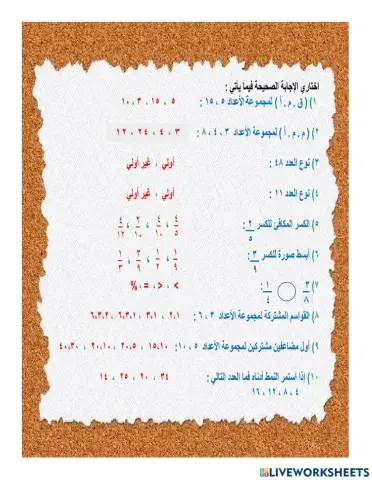 اختاري الإجابة الصحيحة فيما يأتي :
١) ( ق . م . أ ) لمجموعة الأعداد ٥ ، ١٥ : ٥ ، ١٥ ، ٣ ، ١٠
٢) ( م . م . أ ) لمجموعة الأعداد ٣ ، ٤ ، ٨ : ٣ ، ٤ ، ٢٤ ، ١٢
٣) نوع العدد ٤٨ : أولي ، غير أولي
٤) نوع العدد ١١ : أولي ، غير أولي
٥) الكسر المكافئ للكسر ٢/٥ : ٤/٥ ، ٤/١٠ ، ٢/١٠ ، ٤/١٢
٦) أبسط صورة للكسر ٣/٩ : ١/٩ ، ١/٢ ، ٣/٩ ، ١/٣
٧) ٣/٨ ١/٤ : > ، < ، = ، %
٨) القواسم المشتركة لمجموعة الأعداد ٣ ، ٦ : ٢،١ ، ٣،١ ، ٦،٣،١ ، ٦،٣،٢
٩) أول مضاعفين مشتركين لمجموعة الأعداد ٥ ، ١٠ : ١٥،١٠ ، ٢٠،٥ ، ٢٠،١٠ ، ٤٠،٣٠
١٠) إذا استمر النمط أدناه فما العدد التالي : ٣٤ ، ٢٠ ، ٢٥ ، ١٤
٤ ، ٨ ، ١٢ ، ١٦
LIVEWORKSHEETS